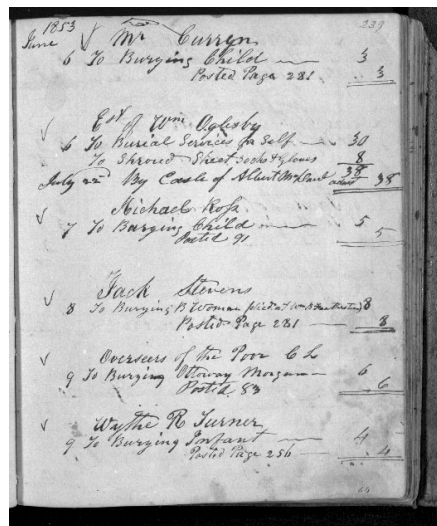 1853 239
June Mr Curren
6 To Burying Child 3
Posted Page 281 3
Est of Wm Oglesby
6 To Burial Services for Self 30
To Shroud Sheet Socks & Gloves 8
38
July 22d By Cash of Albert admr 38
Michael Ross
7 To Burying Child 5
Posted 91 5
Jack Stevens
8 To Burying B Woman 8
Posted Page 281 8
Overseers of the Poor C L
9 To Burying Ottoway Morgan 6
Posted 83 6
Wythe R Turner
9 To Burying Infant 4
Posted Page 256 4